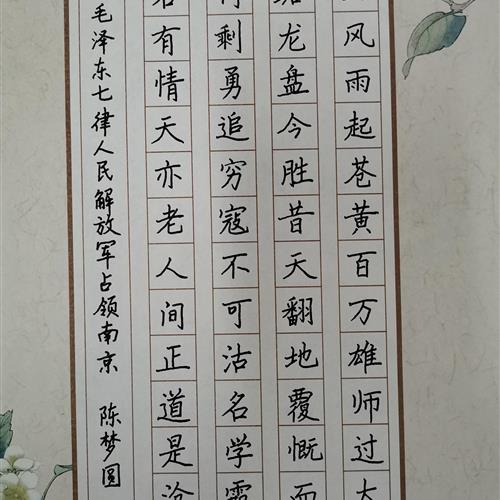 风雨起苍黄百万雄师过大
龙盘今胜昔天翻地覆慨而
剩勇追穷寇不可沽名学霸
有情天亦老人间正道是沧
毛泽东七律人民解放军占领南京 陈梦圆